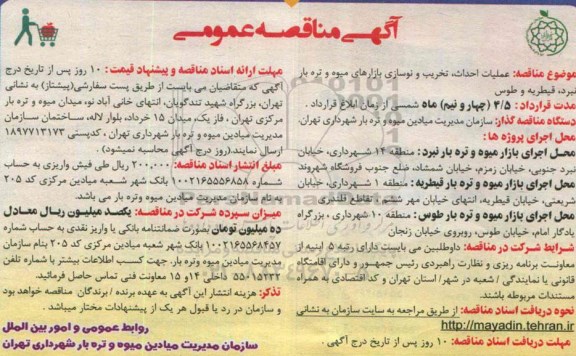 آگهی مناقصه عمومی
موضوع مناقصه: عملیات احداث، تخریب و نوسازی بازارهای میوه و تره بار
نبرد، قیطریه و طوس
مدت قرارداد : ۴/۵ (چهار و نیم) ماه شمسی از زمان ابلاغ قرارداد .
دستگاه مناقصه گذار: سازمان مدیریت میادین میوه و تره بار شهرداری تهران.
محل اجرای پروژه ها :
محل اجرای بازار میوه و تره بار نبرد : منطقه ۱۴ شهرداری، خیابان
نبرد جنوبی، خیابان زمزم، خیابان شمشاد، ضلع جنوب فروشگاه شهروند
محل اجرای بازار میوه و تره بار قیطریه: منطقه ۱ شهرداری، خیابان
شریعتی، خیابان قیطریه، انتهای خیابان مهر شرقی، تقاطع قلندری
محل اجرای بازار میوه و تره بار طوس : منطقه ۱۰ شهرداری ، بزرگراه
یادگار امام، خیابان طوس، روبروی خیابان زنجان
شرایط شرکت در مناقصه: داوطلبین می بایست دارای رتبه ۵ ابنیه از
معاونت برنامه ریزی و نظارت راهبردی رئیس جمهور و دارای اقامتگاه
قانونی یا نمایندگی / شعبه در شهر/ استان تهران و کد اقتصادی به همراه
مستندات مربوطه باشند.
نحوه دریافت اسناد مناقصه: از طریق مراجعه به سایت سازمان به نشانی
http://mayadin.tehran.ir
مهلت دریافت اسناد مناقصه: ۱۰ روز پس از تاریخ درج آگهی .
مهلت ارائه اسناد مناقصه و پیشنهاد قیمت : ۱۰ روز پس از تاریخ درج
آگهی که متقاضیان می بایست از طریق پست سفارشی(پیشتاز) به نشانی
تهران، بزرگراه شهید تندگویان، انتهای خانی آباد نو، میدان میوه و تره بار
مرکزی تهران ، فاز یک، میدان ۱۵ خرداد، بلوار لاله، ساختمان سازمان
مدیریت میادین میوه و تره بار شهرداری تهران ، کدپستی ۱۸۹۷۷۱۳۱۷۳
ارسال نمایند.(روز درج آگهی محاسبه نمیشود)
مبلغ انتشار اسناد مناقصه: ۲۰۰,۰۰۰ ریال طی فیش واریزی به حساب
شماره ۱۰۰۲۱۶۵۵۵۶۸۵۸ بانک شهر شعبه میادین مرکزی کد ۲۰۵
به نام سازمان مدیریت میادین میوه وتره بار می باشد.
میزان سپرده شرکت در مناقصه: یکصد میلیون ریال معادل
ده میلیون تومان بصورت ضمانتنامه بانکی یا واریز نقدی به حساب شماره
۱۰۰۲۱۶۵۵۶۸۴۵۷ بانک شهر شعبه میادین مرکزی کد ۲۰۵ بنام سازمان
مدیریت میادین میوه وتره بار. جهت کسب اطلاعات بیشتر با شماره تلفن
۵۵۰۱۵۲۳۲ داخلی ۱۴و ۱۵ معاونت فنی تماس حاصل فرمائید.
تذکر: هزینه انتشار این آگهی به عهده برنده / برندگان مناقصه خواهد بود
و سازمان در رد یا قبول هر یک از پیشنهادات مختار میباشد .
روابط عمومی و امور بین الملل
سازمان مدیریت میادین میوه و تره بار شهرداری تهران